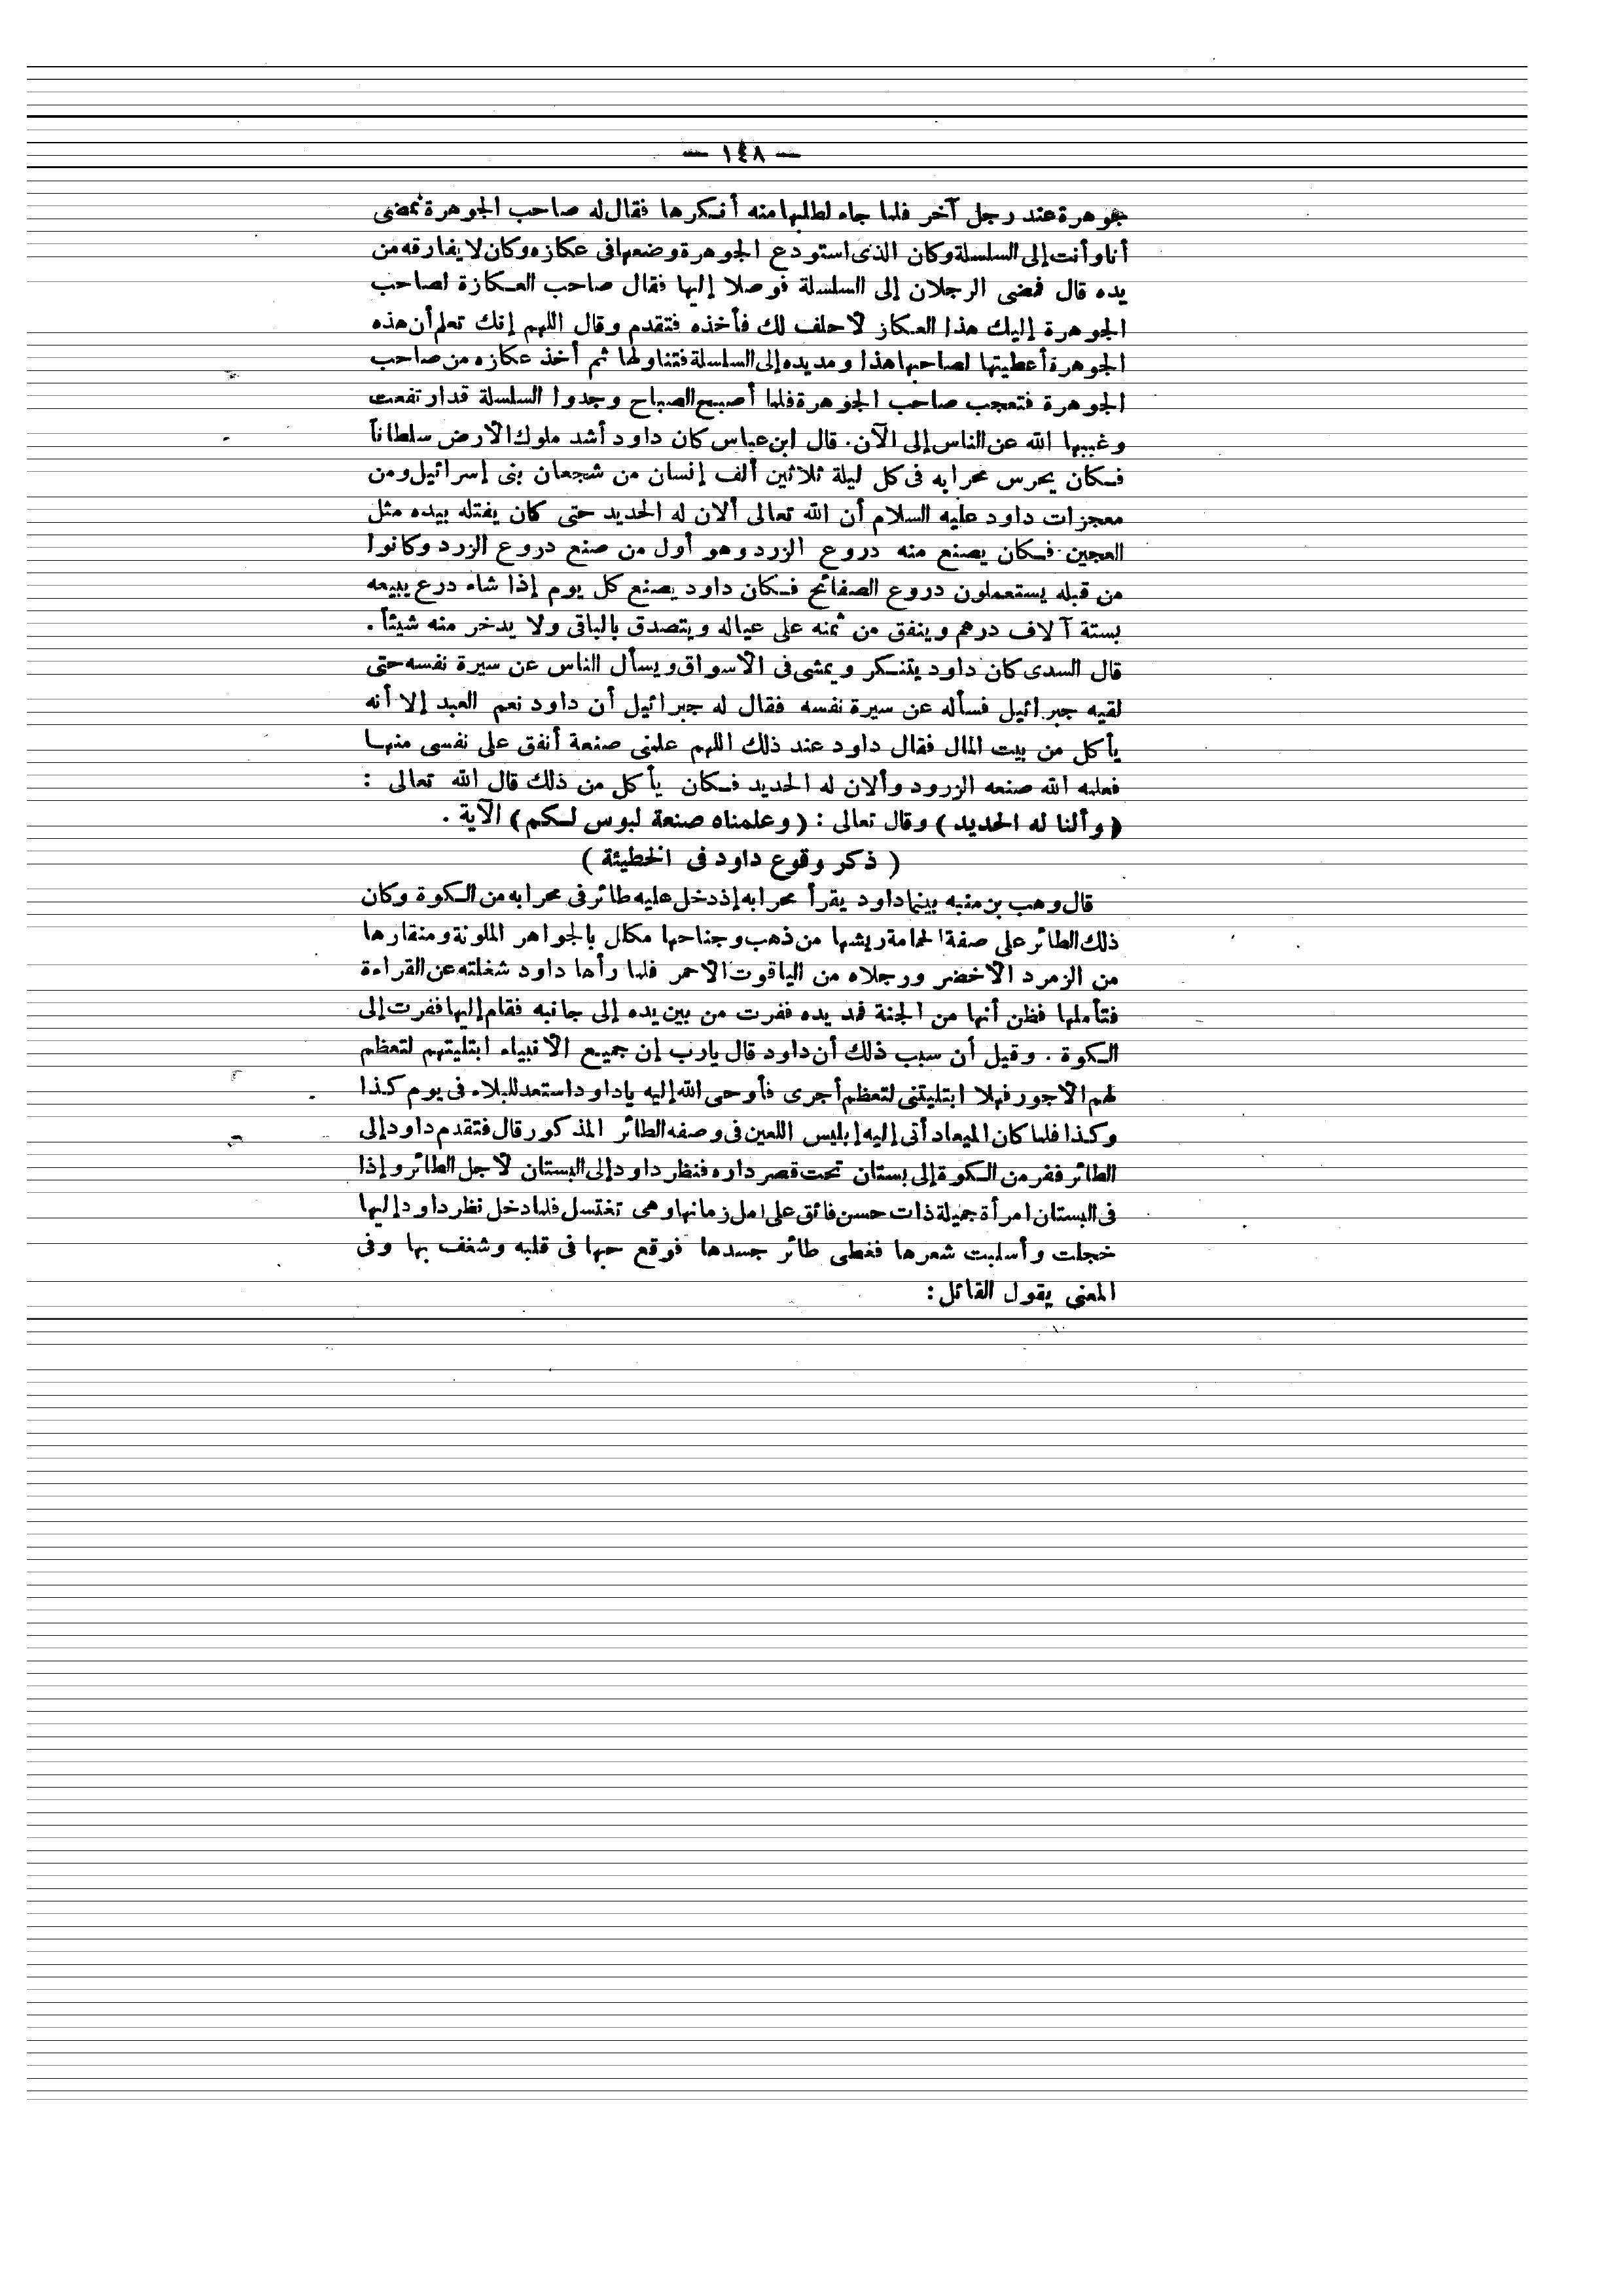 — ١٤٨ —
جوهرة عند رجل آخر فلما جاء لطلبها منه أنكرها فقال له صاحب الجوهرة نمضى
أنا وأنت إلى السلسلة وكان الذى استودع الجوهرة وضعها فى عكازه وكان لا يفارقه من
يده قال فمضى الرجلان إلى السلسلة فوصلا إليها فقال صاحب العكازة لصاحب
الجوهرة إليك هذا العكاز لأحلف لك فأخذه فتقدم وقال اللهم إنك تعلم أن هذه
الجوهرة أعطيتها لصاحبها هذا ومد يده إلى السلسلة فتناولها ثم أخذ عكازه من صاحب
الجوهرة فتعجب صاحب الجوهرة فلما أصبح الصباح وجدوا السلسلة قد ارتفعت
وغيبها الله عن الناس إلى الآن. قال ابن عباس كان داود أشد ملوك الأرض سلطاناً
فكان يحرس محرابه فى كل ليلة ثلاثين ألف إنسان من شجعان بنى إسرائيل ومن
معجزات داود عليه السلام أن الله تعالى ألان له الحديد حتى كان يفتله بيده مثل
العجين فكان يصنع منه دروع الزرد وهو أول من صنع دروع الزرد وكانوا
من قبله يستعملون دروع الصفائح فكان داود يصنع كل يوم إذا شاء درع يبيعه
بستة آلاف درهم وينفق من ثمنه على عياله ويتصدق بالباقى ولا يدخر منه شيئاً .
قال السدى كان داود يتنكر ويمشى فى الأسواق ويسأل الناس عن سيرة نفسه حتى
لقيه جبرائيل فسأله عن سيرة نفسه فقال له جبرائيل أن داود نعم العبد إلا أنه
يأكل من بيت المال فقال داود عند ذلك اللهم علمنى صنعة أنفق على نفسى منها
فعلمه الله صنعه الزرود وألان له الحديد فكان يأكل من ذلك قال الله تعالى :
( وألنا له الحديد ) وقال تعالى : ( وعلمناه صنعة لبوس لكم ) الآية .
( ذكر وقوع داود فى الخطيئة )
قال وهب بن منبه بينما داود يقرأ محرابه إذ دخل عليه طائر فى محرابه من الكوة وكان
ذلك الطائر على صفة الحمامة ريشها من ذهب وجناحها مكلل بالجواهر الملونة ومنقارها
من الزمرد الأخضر ورجلاه من الياقوت الأحمر فلما رأها داود شغلته عن القراءة
فتأملها فظن أنها من الجنة فمد يده ففرت من بين يده إلى جانبه فقام إليها ففرت إلى
الكوة . وقيل أن سبب ذلك أن داود قال يارب إن جميع الأنبياء ابتليتهم لتعظم
لهم الأجور فهلا ابتليتنى لتعظم أجرى فأوحى الله إليه ياداود استعد للبلاء فى يوم كذا
وكذا فلما كان الميعاد أتى إليه إبليس اللعين فى وصفه الطائر المذكور قال فتقدم داود إلى
الطائر ففر من الكوة إلى بستان تحت قصر داره فنظر داود إلى البستان لأجل الطائر وإذا
فى البستان امرأة جميلة ذات حسن فائق على اهل زمانها وهى تغتسل فلما دخل نظر داود إليها
خجلت وأسلبت شعرها فغطى طائر جسدها فوقع حبها فى قلبه وشغف بها وفى
المعنى يقول القائل :